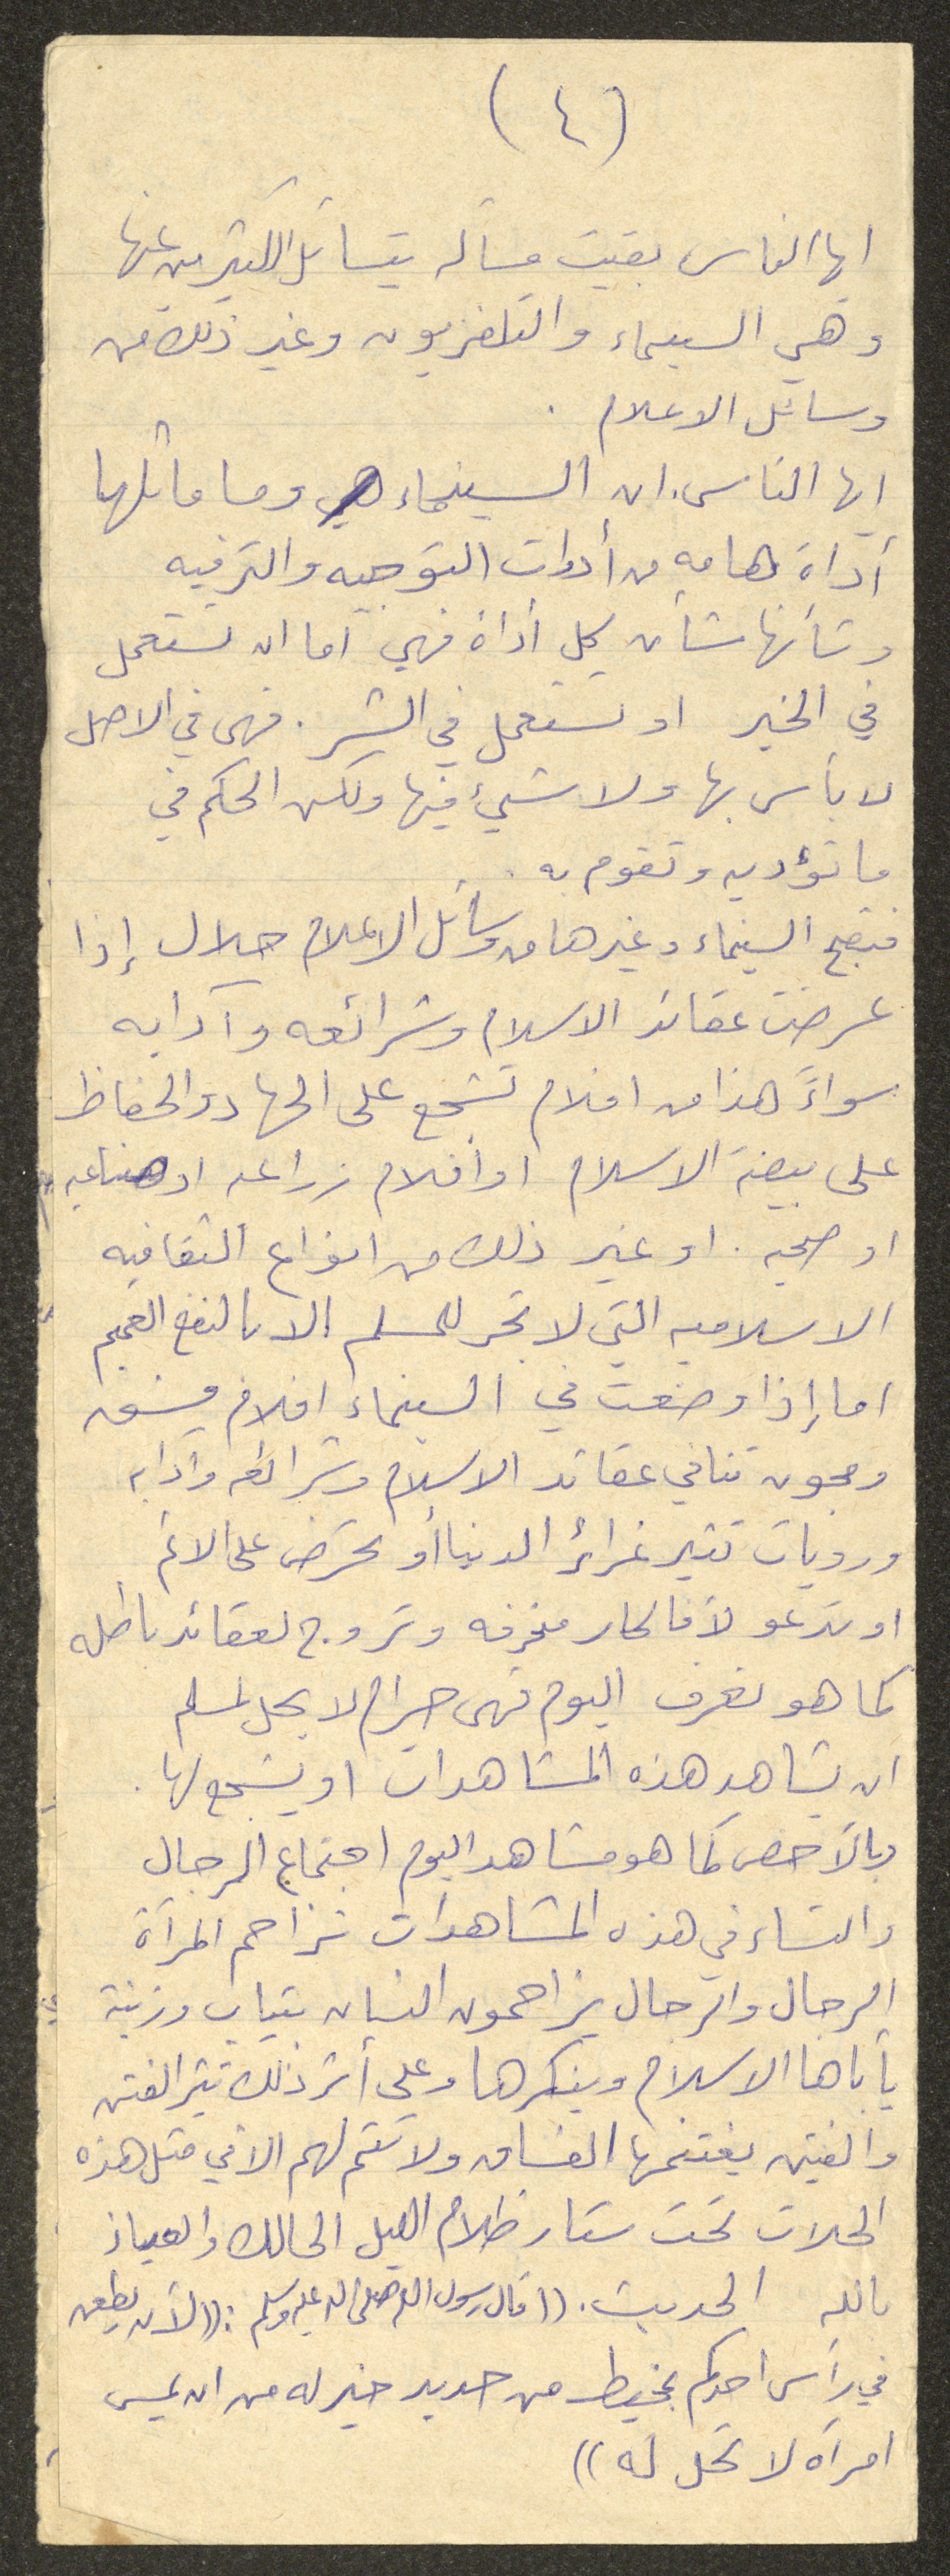 (٤)
ايها الناس بقيت مسأله يتسائل الكثير من عنها
وهي السيماء والتلفزيون وغير ذلك من
وسائل الاعلام .
ايها الناس. ان السينماء هي وما ماثلها
أداة هامه من أدوات التوجيه والترفيه
وشأنها شأن كل أداة فهي اما ان تستعمل
في الخير او تستعمل في الشر . فهى في الاصل
لا بأس بها ولا شيئ فيها ولكن الحكم في
ما تؤديه وتقوم به .
فتصبح السينماء وغيرها من وسائل الاعلام حلال إذا
عرضت عقائد الاسلام وشرائعه وآدابه
سواءً هذا من افلام تشجع على الجهاد والحفاظ
على بيضة الاسلام او أفلام زراعه او صناعيه
او صحيه . او غير ذلك من انواع الثقافيه
الاسلاميه التي لا تجر للمسلم الا بالنفع العميم
اما إذا وضعت في السينماء افلام فسق
ومجون تنافي عقائد الاسلام وشرائعه وآدابه
ورويات تثير غرائز الدنيا أو تحرّض على الاثم
او تدعو لأفكار منحرفه وتروج لعقائد باطله
كما هو نعرف اليوم فهى حرام لا يحل لمسلم
ان يشاهد هذه المشاهدات او يشجع لها .
وبالأخص كما هو مشاهد اليوم اجتماع الرجال
والنساء في هذه المشاهدات تزاحم المرآة
الرجال والرجال يزاحمون النسان بثياب وزينة
يأباها الاسلام وينكرها وعلى أثر ذلك تثير الفتن
والفتن يغتنمها الفساق ولا تتم لهم الا في مثل هذه
الحلات تحت ستار ظلام الليل الحالك والعياذ
بالله الحديث . ((قال رسول الله صلى الله عليه وسلم : ((لأن يطعن
في رأس احدكم بمخيط من حديد خير له من ان يمس
امرآه لا تحل له ))